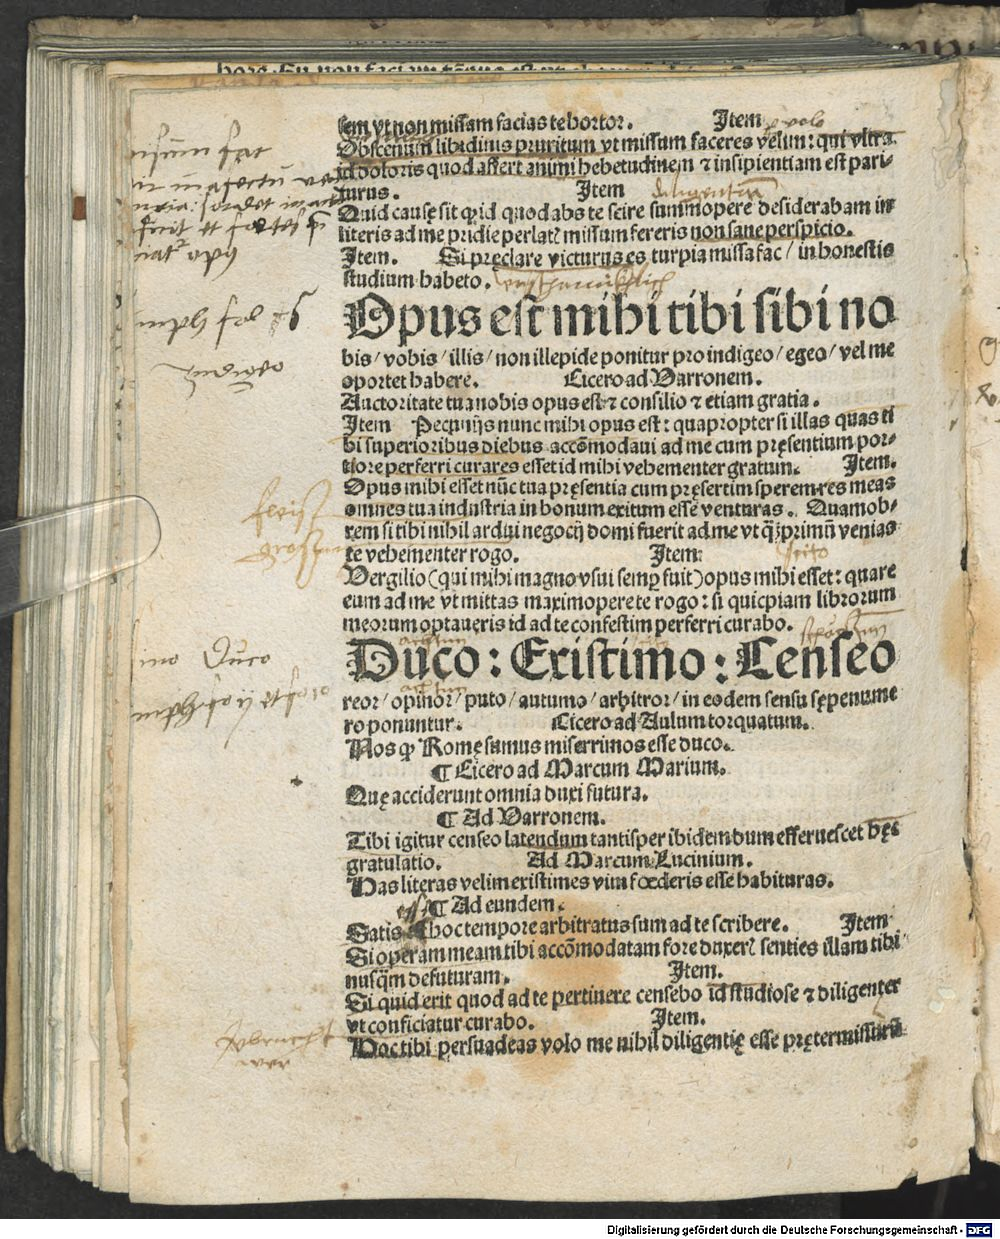 sem vt non missam facias te hortor. Item
Obscenum libidinis pruritum vt missum faceres velim: qui vltra
id doloris quod affert animi hebetudinem ⁊ insipientiam est pari-
turus. Item
diligentium
Quid causę sit qꝙid quod abs te scire summopere desiderabam in
literis ad me pridie perlatꝭ missum fereris non sane perspicio.
Item. Si pręclare victurus es turpia missa fac / in honestis
studium habeto.
Opus est mihi tibi sibi no
bis / vobis / illis / non illepide ponitur pro indigeo / egeo / vel me
oportet habere. Cicero ad Varronem.
Auctoritate tua nobis opus est ⁊ consilio ⁊ etiam gratia.
Item Pecunijs nunc mihi opus est: quapropter si illas quas ti
bi superioribus diebus accōmodaui ad me cum pręsentium por-
titore perferri curares esset id mihi vehementer gratum. Item.
Opus mihi esset nūc tua pręsentia cum pręsertim sperem res meas
omnes tua industria in bonum exitum esse venturas. Quamob-
rem si tibi nihil ardui negocij domi fuerit ad me vt q̄ꝫprimū venias
te vehementer rogo. Item:
Vergilio (qui mihi magno vsui semꝑ fuit) opus mihi esset: quare
eum ad me vt mittas maximopere te rogo: si quicpiam librorum
meorum optaueris id ad te confestim perferri curabo.
Duco: Existimo: Censeo
reor / opinor / puto / autumo / arbitror / in eodem sensu sępenume
ro ponuntur. Cicero ad Aulum torquatum.
Nos ꝙ Romę sumus miserrimos esse duco.
¶ Cicero ad Marcum Marium.
Quę acciderunt omnia duxi futura.
¶ Ad Varronem.
Tibi igitur censeo latendum tantisper ibidem dum efferuescet hęc
gratulatio. Ad Marcum Lucinium.
Has literas velim existimes vim fœderis esse habituras.
¶ Ad eundem.
Satis hoc tempore arbitratus sum ad te scribere. Item
Si operam meam tibi accōmodatam fore duxerꝭ senties illam tibi
nusq̄m defuturam. Item.
Si quid erit quod ad te pertinere censebo id studiose ⁊ diligenter
vt conficiatur curabo. Item.
Hoc tibi persuadeas volo me nihil diligentię esse pretermissurū
Duco
Digitalisierung gefördert durch die Deutsche Forschungsgemeinschaft - DFG